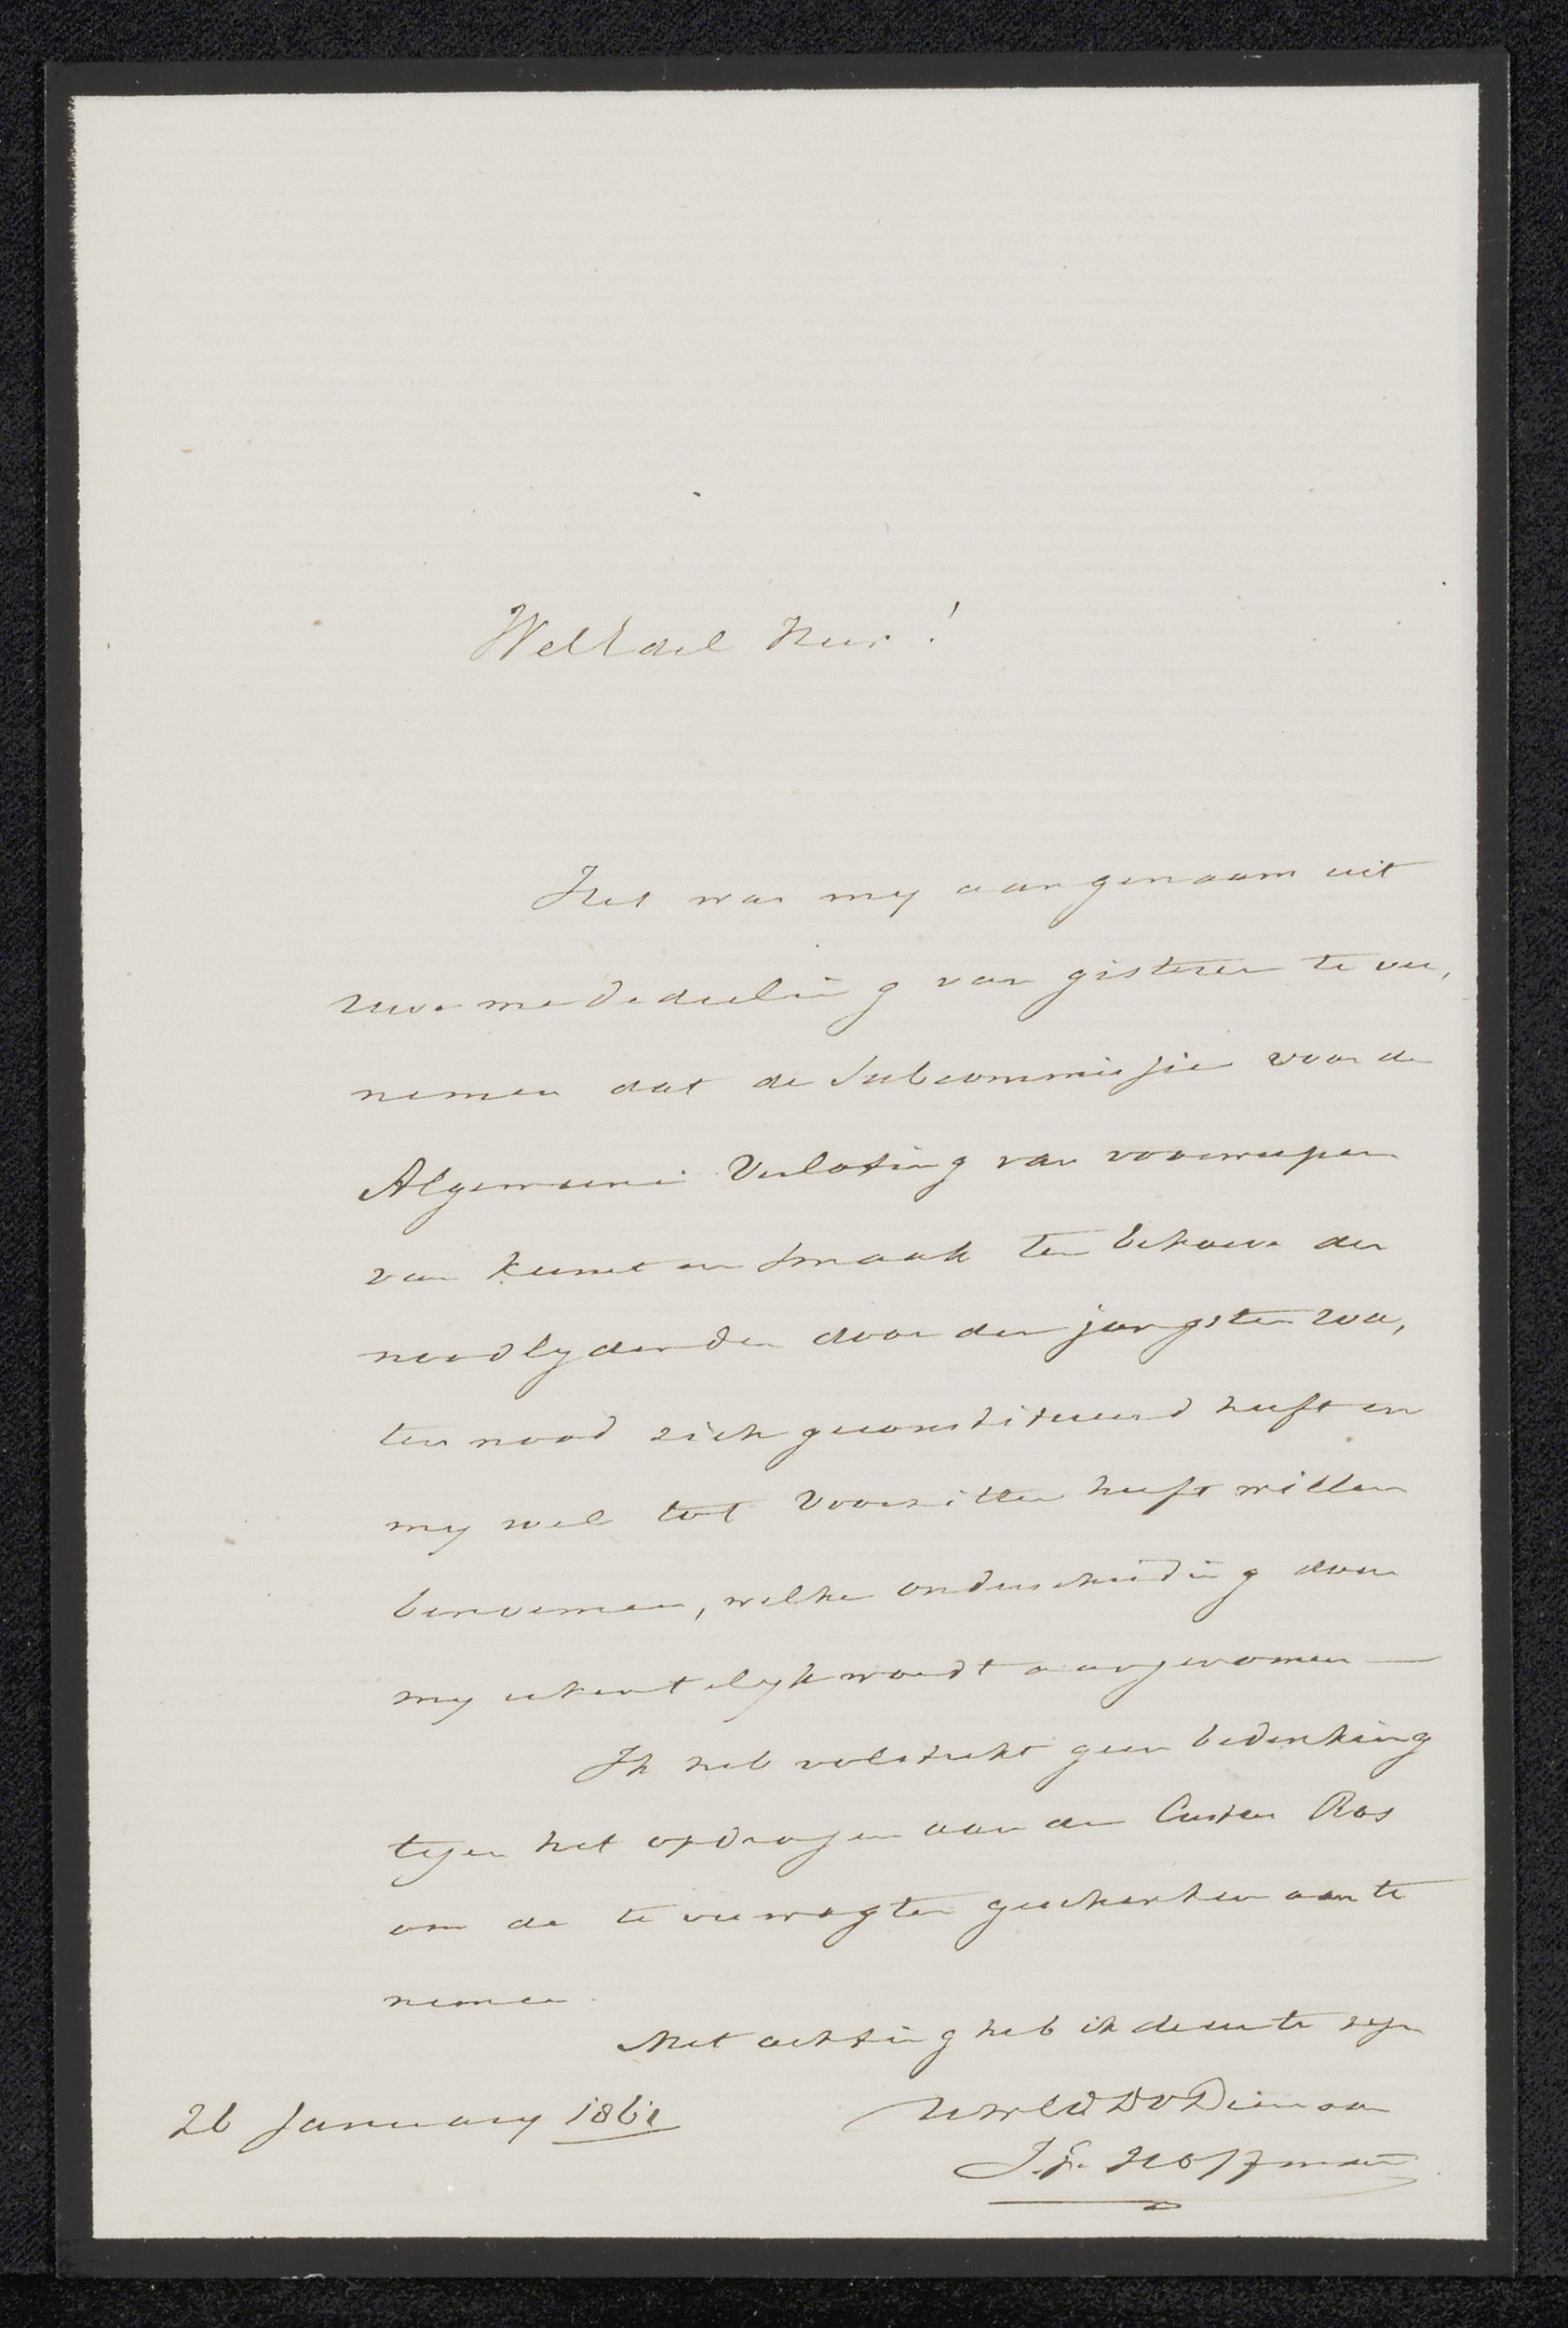 WelEdel Heer!
Het was my aangenaam uit
uwe mededeeling van gisteren te ver,
nemen dat de Subcommissie voor de
Algemeene Verloting van voorwerpen
van kunst en smaak ten behoeve der
noodlydenden door den jongsten wa,
ters nood zich geconstitueerd heeft en
my wel tot Voorzitter heeft willen
benoemen, welke onderscheiding door
my erkentelyk wordt aangenomen —
Ik heb volstrekt geen bedenking
tegen het opdragen aan den Custos Ros
om de te verwagten geschenken aan te
nemen.
Met achting heb ik de eer te zyn
UWEd DVDienaar
J. F. Hoffman
26 January 1861